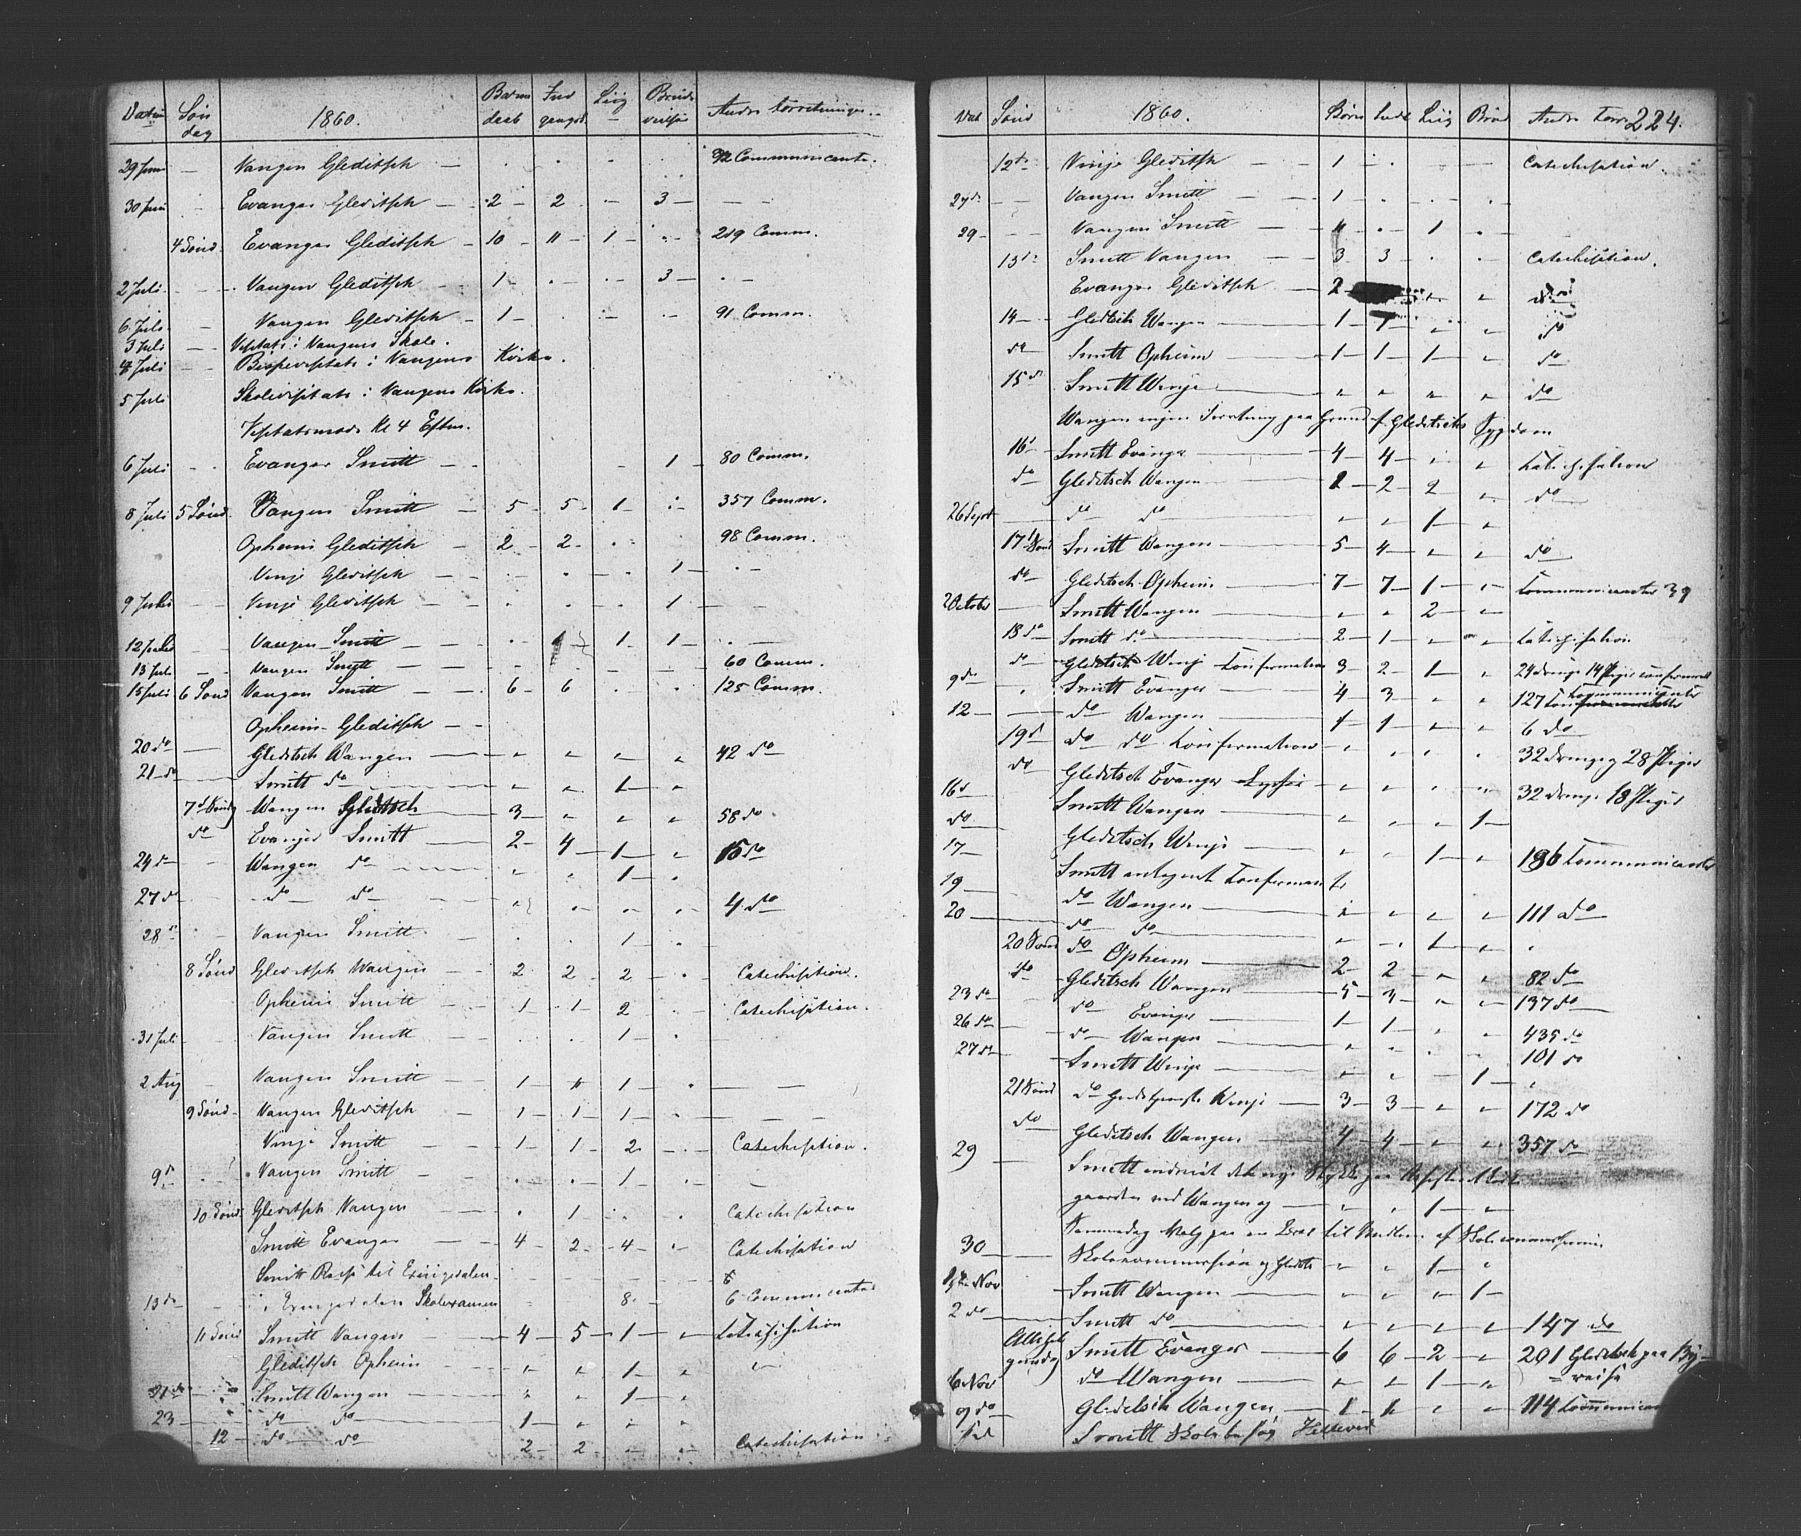 Datum Søn dag 1860. Barne daab Ind gangst. Liig Brude vielse Andre Forretninger.
29 Juni — Vangen Gleditsch — 92 Communicante.
30 Juni Evanger Gleditsch — 2 — 2 — 3 —
4 Sönd Evanger Gleditsch — 10 — 11 — 1 — 219 Comm.
2 Juli — Vangen Gleditsch — 1 — 3 —
6 Juli — Vangen Gleditsch — 1 — 91 Comm.
3 Juli — Visitats i Vangens Skole.
4 Juli — Bispevisitats i Vangens Kirke.
5 Juli Skolevisitats i Vangens Kirke.
Visitatsmøde Kl 4 Efterm.
6 Juli Evanger Smitt — 1 — 80 Comm.
8 Juli 5 Sönd. Vangen Smitt — 5 — 5 — 1 — 357 Comm.
Opheim Gleditsch — 2 — 2 — 98 Comm.
Vinje Gleditsch — 1 —
9 Juli Vinje Gleditsch — 1 —
12 Juli Vangen Smitt — 1 1 —
13 Juli — Vangen Smitt — 60 Comm.
15 Juli 6 Sönd Vangen Smitt — 6 — 6 125 Comm.
Opheim Gleditsch —
20 do — Gleditsch Wangen — 42 do
21 do Smitt do — 1 —
7d Sönd Wangen Gleditsch 3 — 58 do
do Evanger Smitt — 2 — 4 — 1 — 15 do
24 do Wangen do — 1 —
27 do do do 4 do
28 Vangen Smitt 1 —
8 Sönd Gleditsch Wangen — 2 2 — 2 — Catechisation.
Opheim Smitt — 1 — 1 — 2 Catechisation.
31 Juli Vangen Smitt — 1 —
2 Aug Vangen Smitt — 1 — 1 —
9 Sönd Vangen Gleditsch — 1 — 1 — 1 —
Vinje Smitt — 1 — 1 — 2 Catechisation.
9 Vangen Smitt — 1 —
10 Sönd. Gleditsch Vangen — 1 Catechisation
Smitt Evanger — 4 — 2 — 4 — Catechisation
Smitt Reise til Exingedalen
13 do i Exingedalen Skoleexamen 8. 6 Communicanter
11 Sönd Smitt Vangen — 4 — 5 — 1 — Catechisation
Gleditsch Opheim — 1 —
Smitt Wangen — 1 —
23 — do do — 1 —
12 — do do 2 — 2 — Catechisation
Dat Sönd 1860. Børn Indl Liig Brud Andre Forr 224.
12te Vinje Gleditsch 1 Catechisation.
27d Vangen Smitt — 1 —
29 — Vangen Smitt — 1
13d Smitt Vangen — 3 3 Catechisation.
Evanger Gleditsch — 2 do
14 — Gleditsch Wangen — 1 — 1 — do
do Smitt Opheim — 1 — 1 — 1 — do
15 d Smitt Winje — do
Wangen ingen Forretning paa Grund af Gleditschs Sygdom
16d Smitt Evanger — 4 — 4 — Katechisation
do Gleditsch Wangen — 2 — 2 — 2 — do
26 Sept do do — 1 —
17d Sönd Smitt Wangen — 5 — 4 — do
do Gleditsch Opheim. — 7 — 7 — 1 — Kommunicanter 39
2 October Smitt Wangen — 2 —
18 do Smitt do — 2 — 1 — Katechisation
do Gleditsch Winje Konfirmation 3 — 2 — 1 — 24 Drenge 14 Piger confirmeret
9 do Smitt Evanger — 4 — 3 — 127 Kommunicanter
12 — do Wangen — 1 — 1 — 6 do
19 d do do Konfirmation — 32 Drenge 28 Piger
do Gleditsch Evanger — 32 Drenge 18 Piger
16 d Smitt Wangen — 1 —
do Gleditsch Winje — 1 — 196 Kommunicanter
17 — Smitt antegnet Konfirmanter
19 do Wangen — 111 do
20 do do — 1 —
20 Sönd do Opheim — 2 — 2 — 82 do
do Gleditsch Wangen — 5 — 3 — 137 do
23 do do Evanger — 1 — 1 — 435 do
26 do do Wangen — 101 do
27 do Smitt Winje — 1 —
21 Sönd do Gudstjeneste Winje — 3 — 3 — 172 do
do Gleditsch Wangen — 4 — 4 — 357 do
29 — Smitt indviet det nye Stykke paa
gaarden ved Wangen og — 1 —
30 — Samme dag Valg paa en Lærer til Medlem af Skolecommissionen
Skolekommission og — 1 —
1ste Nov Smitt Wangen — 1 —
2 do Smitt do — 147 do
Allehelgensdag Smitt Evanger — 6 — 6 — 2 — 201 Gleditsch paa By-
6 Nov do Wangen — 1 — reise
9 do Gleditsch Wangen — 1 — 1 — 114 Kommunican
Smitt Skolebesøg